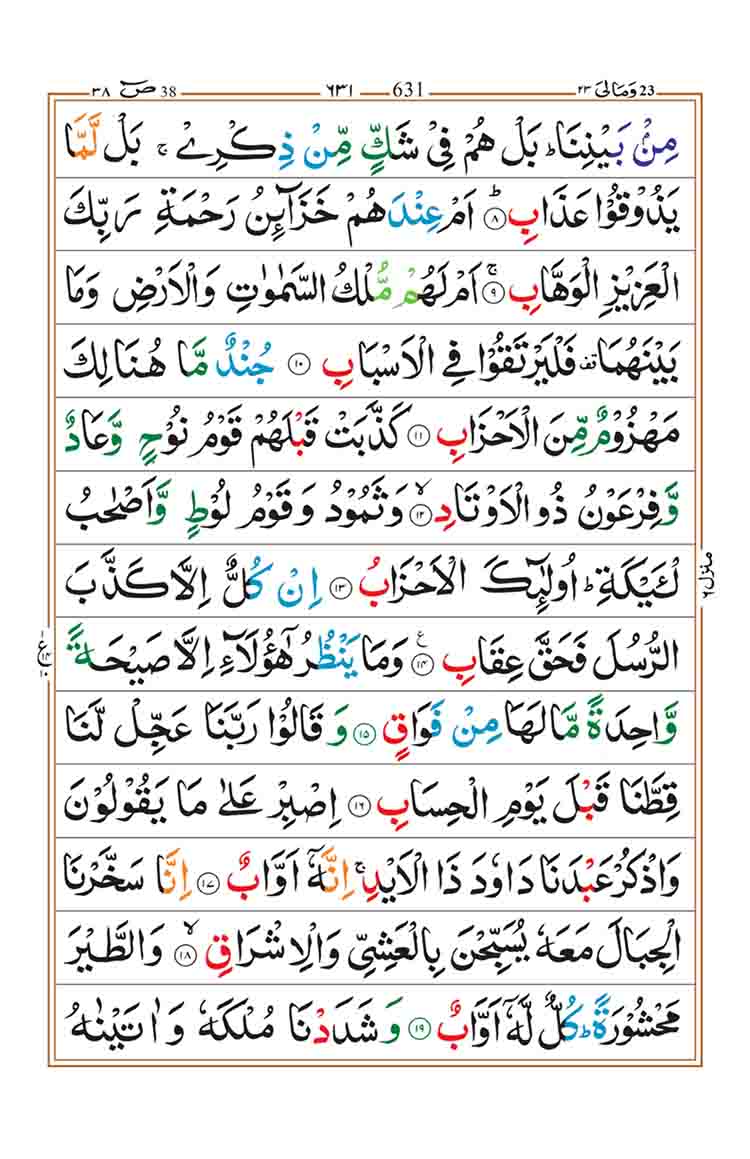 ٣٨ صٓ 38 ٦٣١ 631 ٢٣ وَمَالِىَ 23
مِنْۢ بَيْنِنَا ؕ بَلْ هُمْ فِىْ شَكٍّ مِّنْ ذِكْرِىْ ۚ بَلْ لَّمَّا
يَذُوْقُوْا عَذَابِ ؕ‏ ﴿۸﴾ اَمْ عِنْدَهُمْ خَزَآئِنُ رَحْمَةِ رَبِّكَ
الْعَزِيْزِ الْوَهَّابِ‌ ۚ‏ ﴿۹﴾ اَمْ لَهُمْ مُّلْكُ السَّمٰوٰتِ وَالْاَرْضِ وَمَا
بَيْنَهُمَا قف فَلْيَرْتَقُوْا فِى الْاَسْبَابِ‏ ﴿۱۰﴾ جُنْدٌ مَّا هُنَالِكَ
مَهْزُوْمٌ مِّنَ الْاَحْزَابِ‏ ﴿۱۱﴾ كَذَّبَتْ قَبْلَهُمْ قَوْمُ نُوْحٍ وَّعَادٌ
وَّفِرْعَوْنُ ذُو الْاَوْتَادِ ۙ‏ ﴿۱۲﴾ وَثَمُوْدُ وَقَوْمُ لُوْطٍ وَّاَصْحٰبُ
لْئَيْكَةِ‌ ؕ اُولٰٓئِكَ الْاَحْزَابُ‏ ﴿۱۳﴾ اِنْ كُلٌّ اِلَّا كَذَّبَ
الرُّسُلَ فَحَقَّ عِقَابِ ع‏ ﴿۱۴﴾ وَمَا يَنْظُرُ هٰٓؤُلَآءِ اِلَّا صَيْحَةً
وَّاحِدَةً مَّا لَهَا مِنْ فَوَاقٍ‏ ﴿۱۵﴾ وَقَالُوْا رَبَّنَا عَجِّلْ لَّنَا
قِطَّنَا قَبْلَ يَوْمِ الْحِسَابِ‏ ﴿۱۶﴾ اِصْبِرْ عَلٰى مَا يَقُوْلُوْنَ
وَاذْكُرْ عَبْدَنَا دَاوٗدَ ذَا الْاَيْدِ‌ ۚ اِنَّهٗۤ اَوَّابٌ‏ ﴿۱۷﴾ اِنَّا سَخَّرْنَا
الْجِبَالَ مَعَهٗ يُسَبِّحْنَ بِالْعَشِىِّ وَالْاِشْرَاقِ ۙ‏ ﴿۱۸﴾ وَالطَّيْرَ
مَحْشُوْرَةً ؕ كُلٌّ لَّهٗۤ اَوَّابٌ‏ ﴿۱۹﴾ وَشَدَدْنَا مُلْكَهٗ وَاٰتَيْنٰهُ
منزل ٦